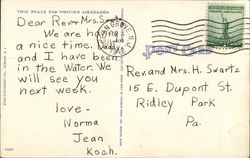 THIS SPACE FOR WRITING MESSAGES
Dear Rev. + Mrs.
We are having
a nice time.
and I have been
in the Water. We
will see you
next week.
love -
Norma
Jean
Koch.
OCEAN GROVE N.J.
Rev. and Mrs. H. Swartz
15 E. Dupont St.
Ridley Park
Pa.